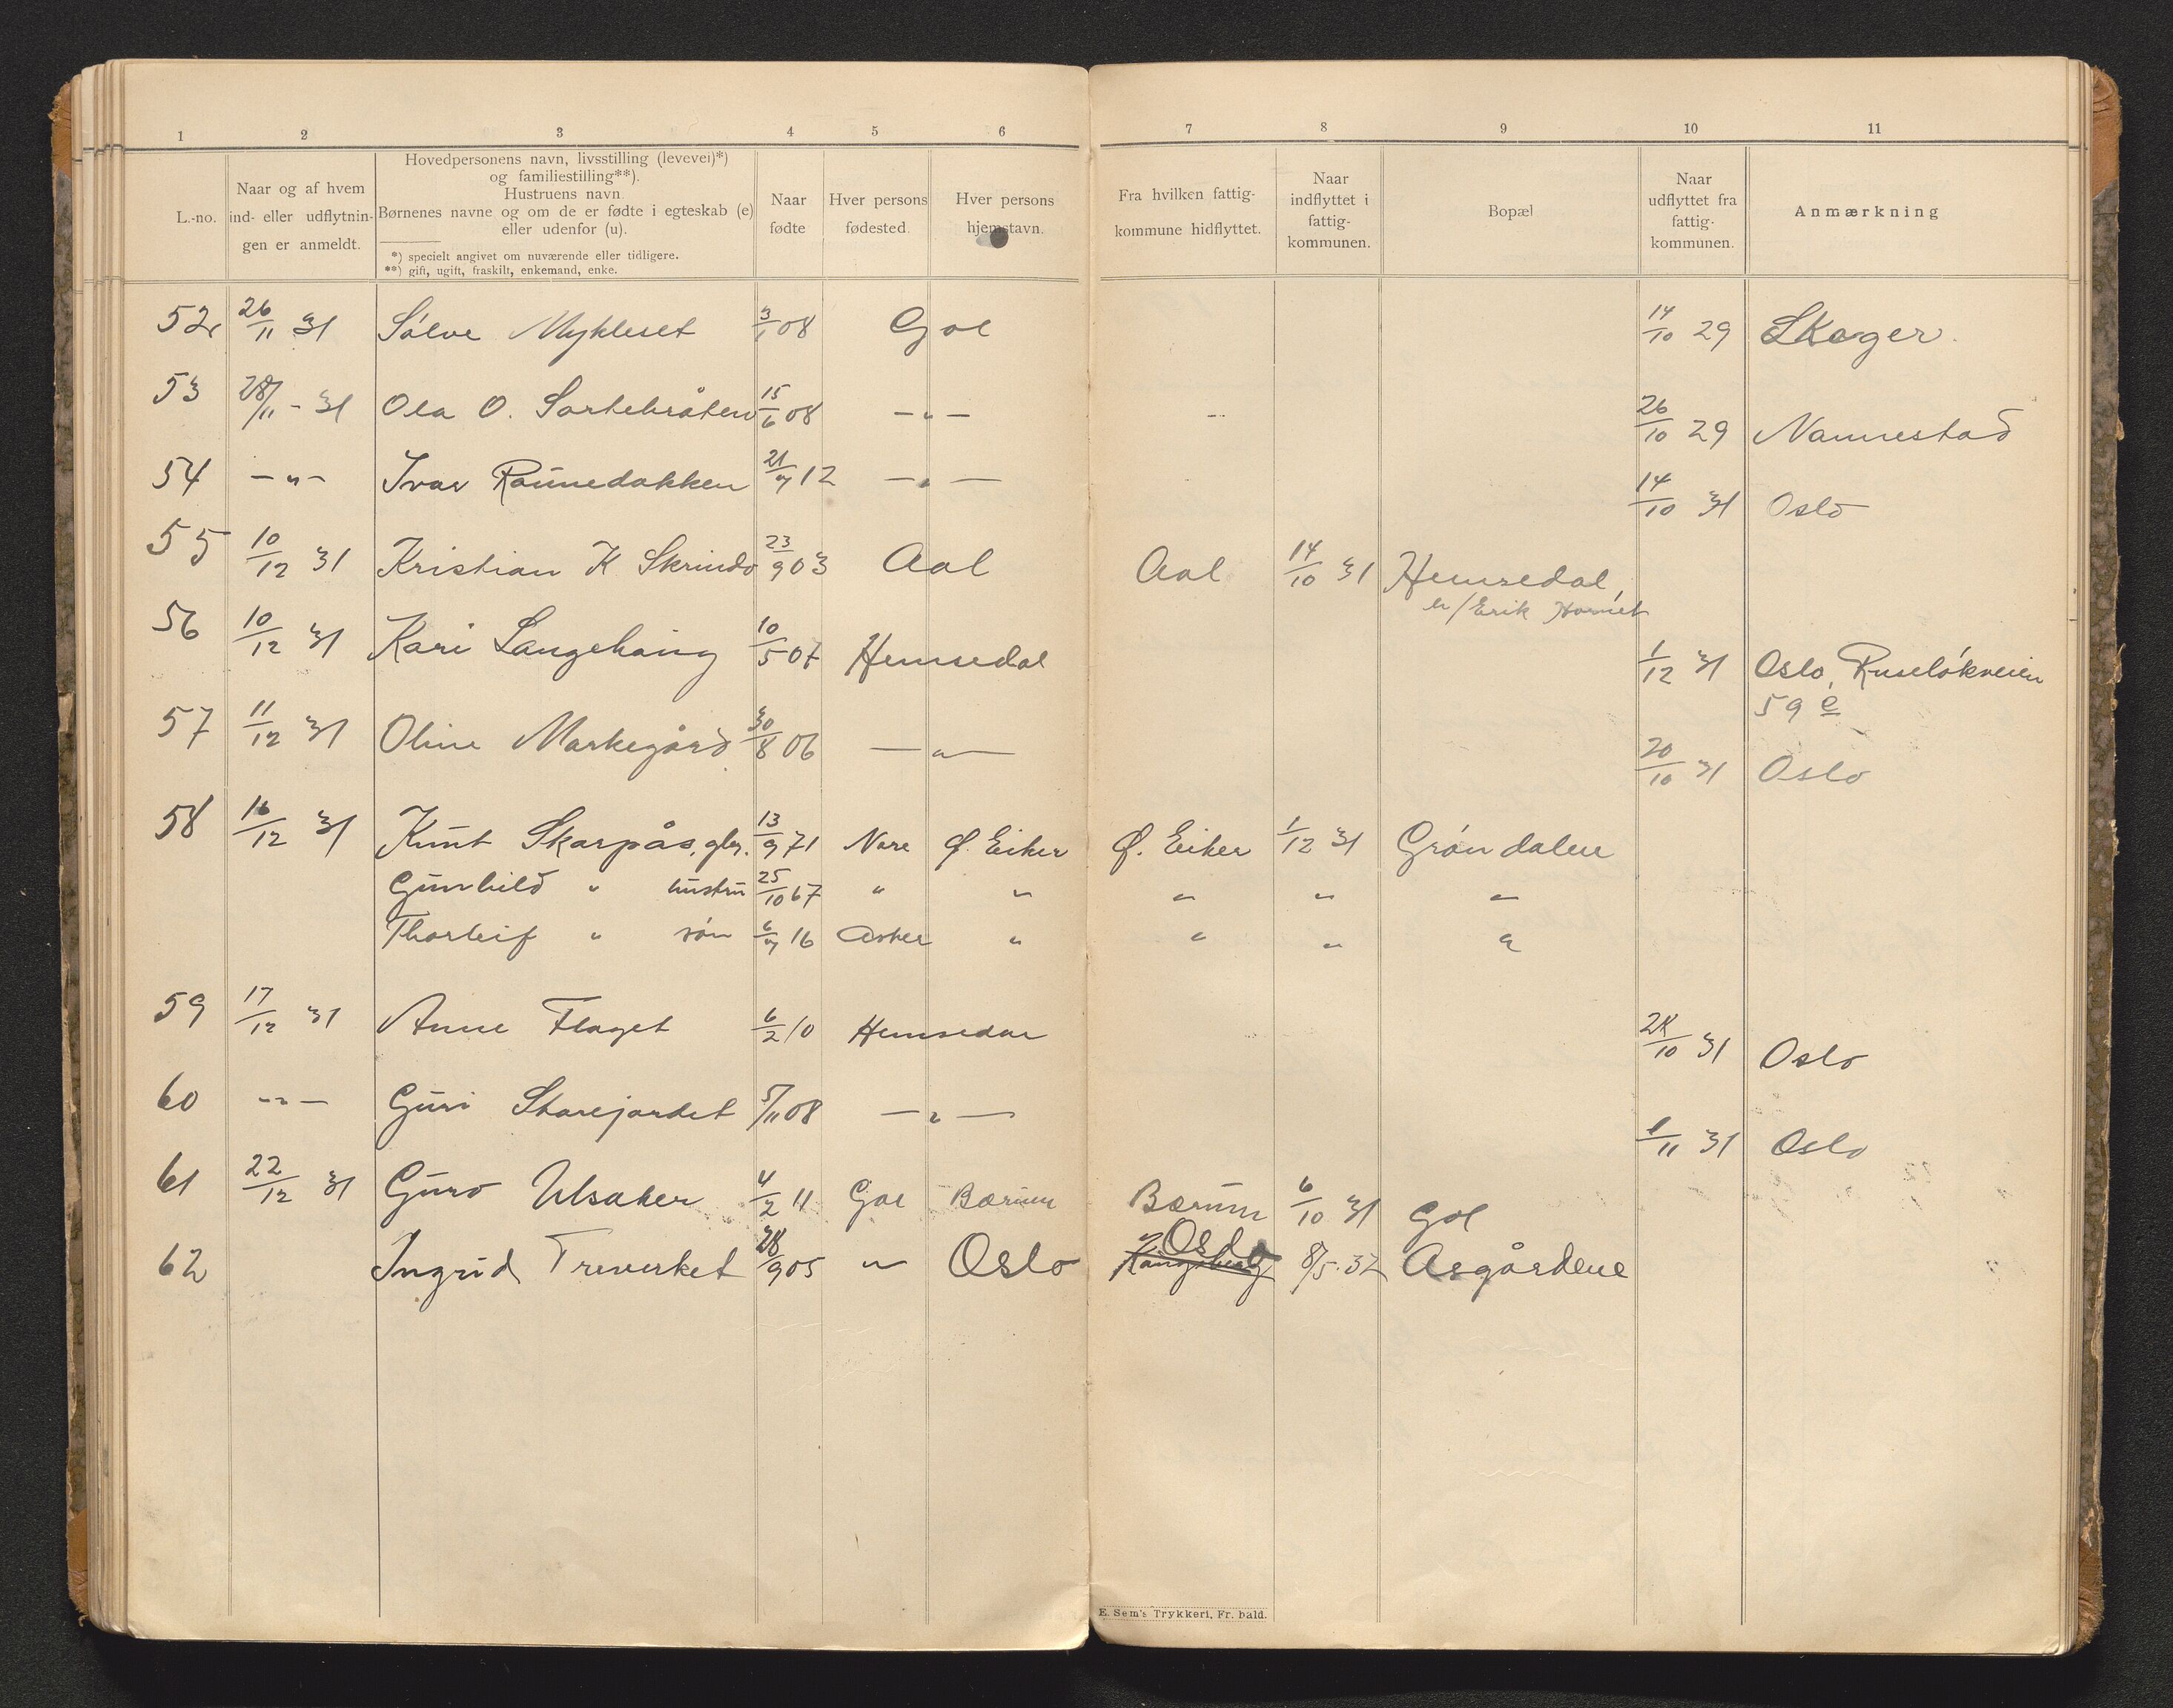 1 2 3 4 5 6 7 8 9 10 11
L.-no.
Naar og af hvem
ind- eller udflytnin-
gen er anmeldt.
Hovedpersonens navn, livsstilling (levevei)*)
og familiestilling**).
Hustruens navn.
Børnenes navne og om de er fødte i egteskab (e)
eller udenfor (u).
*) specielt angivet om nuværende eller tidligere.
**) gift, ugift, fraskilt, enkemand, enke.
Naar
fødte
Hver persons
fødested.
Hver persons
hjemstavn.
Fra hvilken fattig-
kommune hidflyttet.
Naar
indflyttet i
fattig-
kommunen.
Bopæl
Naar
udflyttet fra
fattig-
kommunen.
Anmærkning
52 26/11 31 Sólve Mykleset 3/1 08 Gol 14/10 29 Skoger.
53 28/11 - 31 Ola O. Sortebråten 15/6 08 - " - 26/10 29 Nannestad
54 - " - Ivar Raunedokken 21/7 12 - " - 14/10 31 Oslo
55 10/12 31 Kristian K Skrindo 23/9 03 Aal Aal 14/10 31 Hemsedal,
Erik
56 10/12 31 Kari Langehaug 10/5 07 Hemsedal 1/12 31 Oslo, Ruselókveien
59 e
57 11/12 31 Oline Markegård 30/8 06 - " - 20/10 31 Oslo
58 16/12 31 Knut Skarpås, gbr. 13/9 71 Nore Ø. Eiker Ø. Eiker 1/12 31 Gróndalen
Gunhild " hustru 25/10 67 " " " " "
Thorleif " són 6/7 16 Asker " " " "
59 17/12 31 Anne Flaget 6/2 10 Hemsedal 28/10 31 Oslo
60 - " - Guri Skarejordet 5/11 08 - " - 1/11 31 Oslo
61 22/12 31 Guro Ulsaker 4/2 11 Gol Bærum Bærum 6/10 31 Gol
Oslo
62 Ingrid Treverket 28/9 05 " Oslo Kongsberg 8/5. 32 Asgårdene
E. Sem's Trykkeri, Fr. hald.